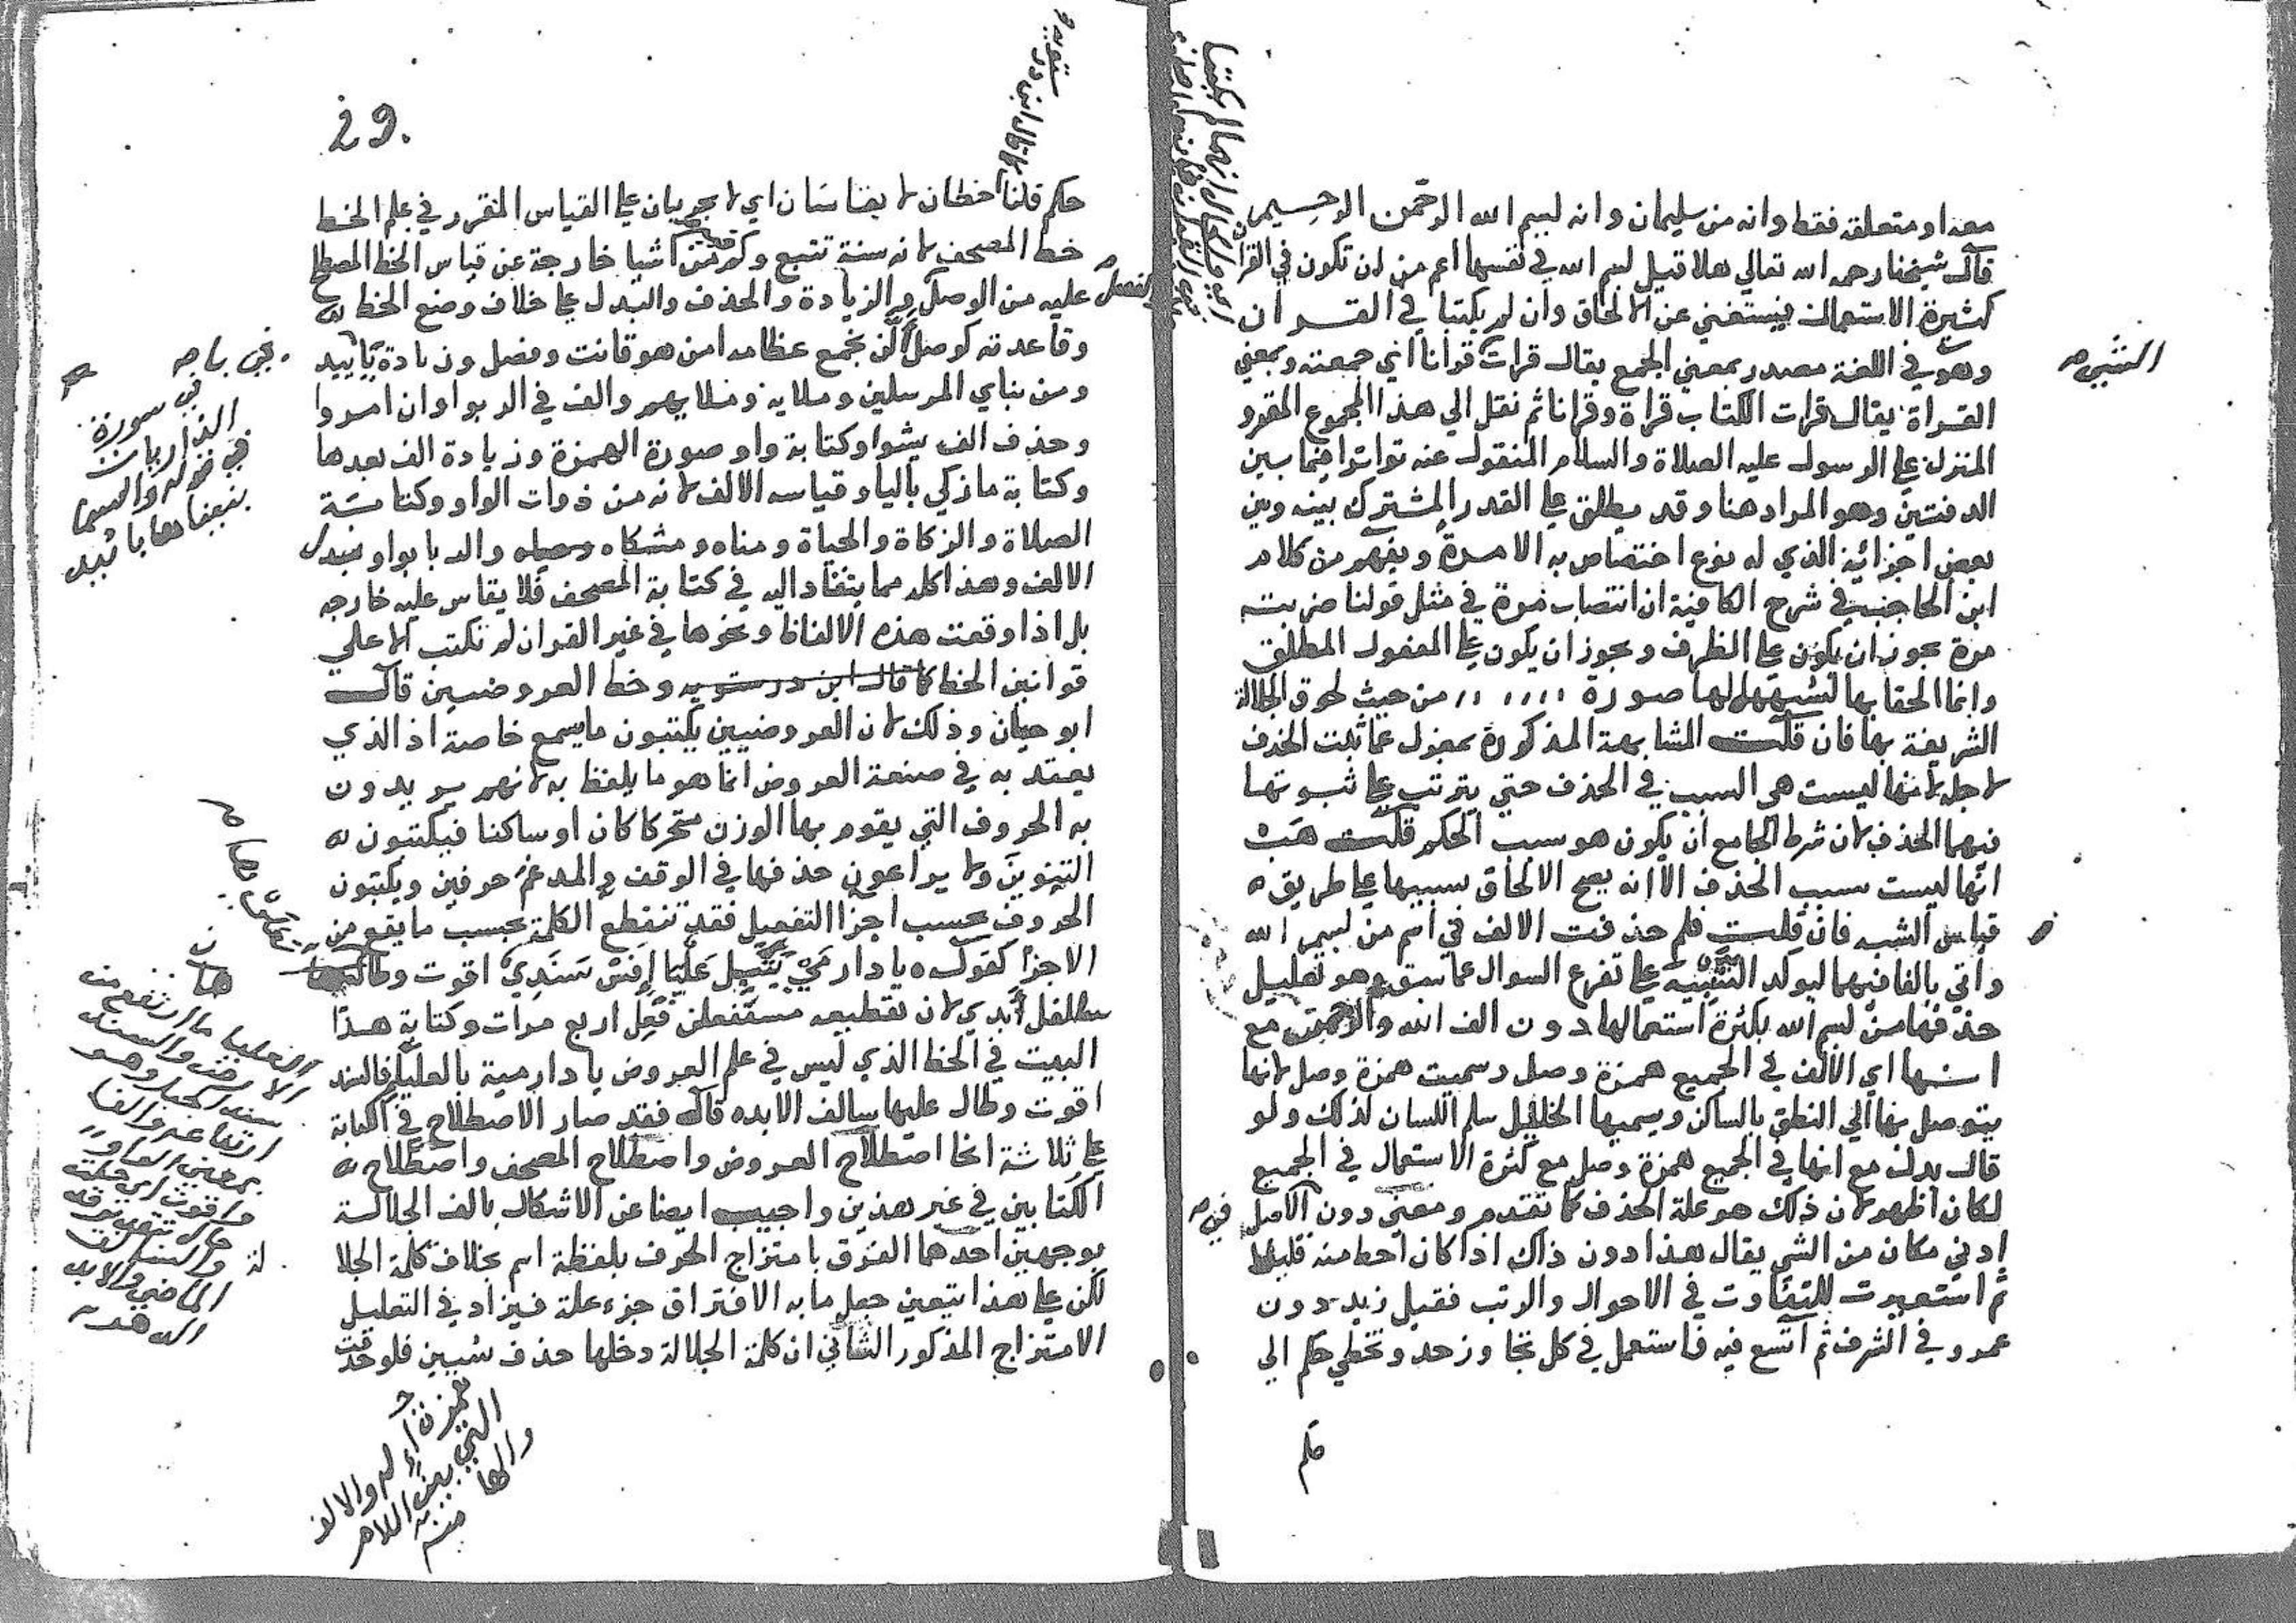 معه او متعلقه فقط وانه من سليمان وانه لبسم الله الرحمن الرحيم
قال شيخنا رحمه الله تعالي هلا قيل بسم الله في نفسها اعم من ان تكون في القران
كثيرة الاستعمال فيستغني عن الالحاق وان لم يكتبا في القران
وهو في اللغة مصدر بمعني الجمع يقال قرات قرانا اي جمعته وبمعني
القراة يقال قرات الكتاب قراة وقرانا ثم نقل الي هذا المجموع المقرو
المنزل علي الرسول عليه الصلاة والسلام المنقول عنه تواترا فيما بين
الدفتين وهو المراد هنا وقد يطلق علي القدر المشترك بينه وبين
بعض اجزائه الذي له نوع اختصاص به الامرة ويفهم من كلام
ابن الحاجب في شرح الكافية ان انتصاب مرة في مثل قولنا ضربته
مرة يجوز ان يكون علي الظرف ويجوز ان يكون علي المفعول المطلق
وانما الحقا بها لشبههما لها صورة من حيث لحوق الجلالة
الشريفة بها فان قلت المشابهة المذكورة بمعزل عما ثبت الحذف
لاجله لانها ليست هي السبب في الحذف حتي يترتب علي ثبوتها
فيهما الحذف لان شرط الجامع ان يكون هو سبب الحكم قلت هب
انها ليست سبب الحذف الا انه يصح الالحاق بسببها علي طريق
قياس الشبه فان قلت فلم حذفت الالف في اسم من بسم الله
واتي بالفا فيهما ليوكد التنبيه علي تفرع السوال عما سبق وهو تعليل
حذفها من بسم الله بكثرة استعمالها دون الف الله والرحمن مع
انها اي الالف في الجميع همزة وصل وسميت همزة وصل لانها
يتوصل بها الي النطق بالساكن ويسميها الخليل سلم اللسان لذلك ولو
قال بدل مع انها في الجميع همزة وصل مع كثرة الاستعمال في الجميع
لكان اظهر لان ذلك هو علة الحذف كما تقدم ومعني دون الاصل
ادني مكان من الشي يقال هذا دون ذاك اذا كان احط منه قليلا
ثم استعيرت للتفاوت في الاحوال والرتب فقيل زيد دون
عمرو في الشرف ثم اتسع فيه فاستعمل في كل تجاوز حد وتخطي حكم الي
حكم
29.
حكم قلنا خطان لا يقاسان اي لا يجريان علي القياس المقرر في علم الخط
خط المصحف لانه سنة تتبع وكم من اشيا خارجة عن قياس الخط المصطلح
عليه من الوصل والزيادة والحذف والبدل علي خلاف وضع الخط
وقاعدته كوصل الن نجمع عظامه امن هو قانت وفصل وزيادة ياييد
ومن نباي المرسلين وملايه وملايهم والف في الربوا وان امروا
وحذف الف يشوا وكتابة واو صورة الهمزة وزيادة الف بعدها
وكتابة ما زكي باليا وقياسه الالف لانه من ذوات الواو وكتابة
الصلاة والزكاة والحياة ومناه ومشكاه والربا بواو بدل
الالف وهذا كله مما ينقاد اليه في كتابة المصحف فلا يقاس عليه خارجه
بل اذا وقعت هذه الالفاظ ونحوها في غير القران لم تكتب الا علي
قوانين الخط كما قال ابن درستويه وخط العروضيين قال
ابو حيان وذلك لان العروضيين يكتبون ما يسمع خاصة اذ الذي
يعتد به في صنعة العروض انما هو ما يلفظ به لانهم يريدون
به الحروف التي يقوم بها الوزن متحركا كان او ساكنا فيكتبون
التنوين ولا يراعون حذفها في الوقف والمدغم حرفين ويكتبون
الحروف بحسب اجزا التفعيل فقد تنقطع الكلمة بحسب ما يقع من
الاجزا كقوله يا دار مي يتبل عليا افس سندي اقوت وطال
سالفل ابدي لان تقطيعه مستفعلن فعل اربع مرات وكتابة هذا
البيت في الخط الذي ليس في علم العروض يا دار مية بالعليا فالسند
اقوت وطال عليها سالف الابد قال فقد صار الاصطلاح في الكتابة
علي ثلاثة انحا اصطلاح العروض واصطلاح المصحف واصطلاح
الكتابين في غير هذين واجيب ايضا عن الاشكال بالف الجلالة
بوجهين احدهما الفرق بامتزاج الحرف بلفظة اسم بخلاف كلمة الجلا
لة
لكن علي هذا يتعين جعل ما به الافتراق جزء علة فيزاد في التعليل
الامتزاج المذكور الثاني ان كلمة الجلالة دخلها حذف شيين فلو حذفت
في سورة
الذاريات
في قوله والسما
بنيناها باييد
كما قال ابن در
ستويه
همزة
اله والالف
التي بين اللام
والها